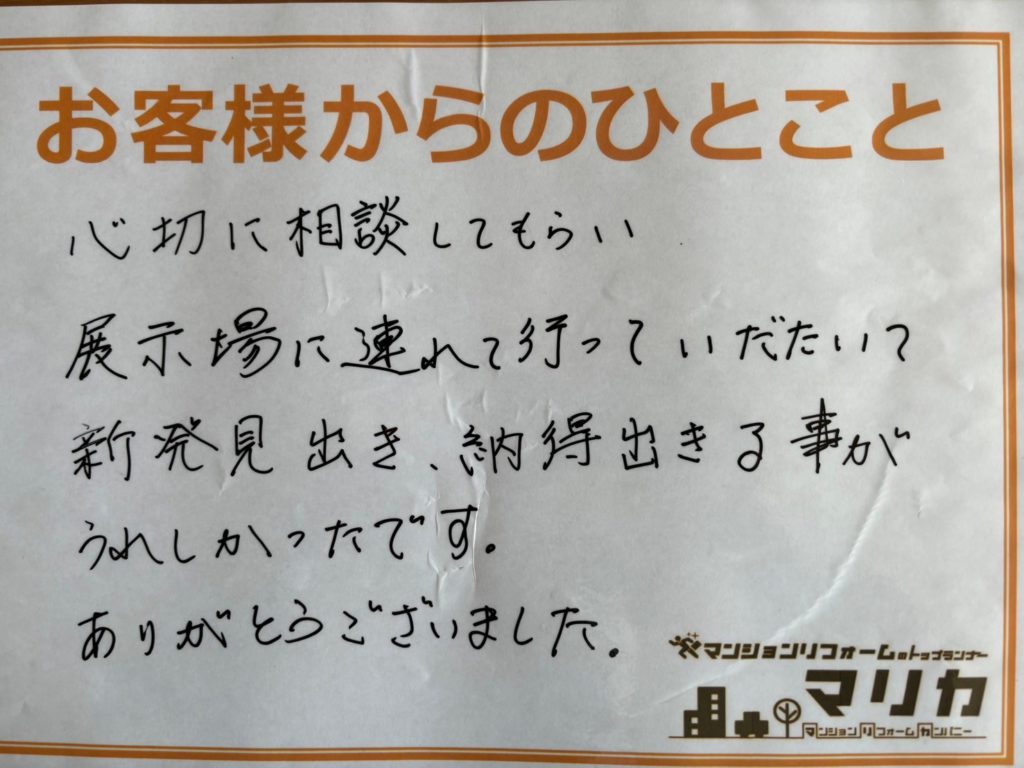 お客様からのひとこと
心切に相談してもらい
展示場に連れて行っていだたいて
新発見出き、納得出きる事が
うれしかったです。
ありがとうございました。
マンションリフォームのトップランナー
マリカ
マンションリフォームカンパニー